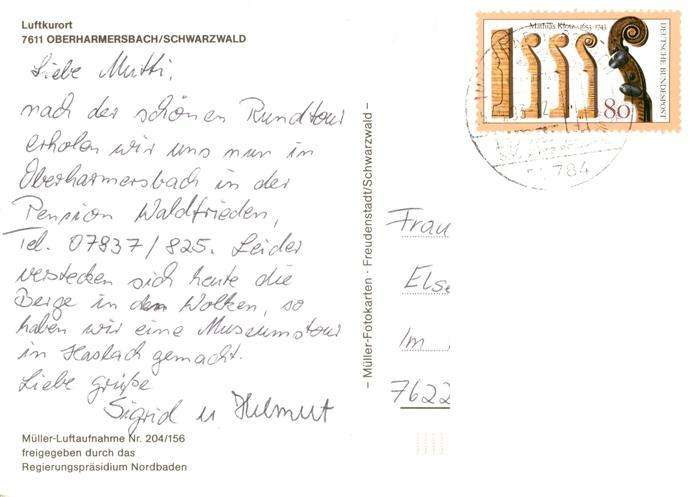 Luftkurort
7611 OBERHARMERSBACH/SCHWARZWALD
Liebe Mutti,
nach der schönen Rundtour
erholen wir uns nun in
Oberharmersbach in der
Pension Waldfrieden,
Tel. 07837/825. Leider
verstecken sich heute die
Berge in den Wolken, so
haben wir eine Museumstour
in Haslach gemacht.
Liebe grüße
Sigrid u Helmut
Müller-Luftaufnahme Nr. 204/156
freigegeben durch das
Regierungspräsidium Nordbaden
– Müller-Fotokarten · Freudenstadt/Schwarzwald –
Mathias Klotz 1653-1743
DEUTSCHE BUNDESPOST
80
784
Frau
Else
Im
7622